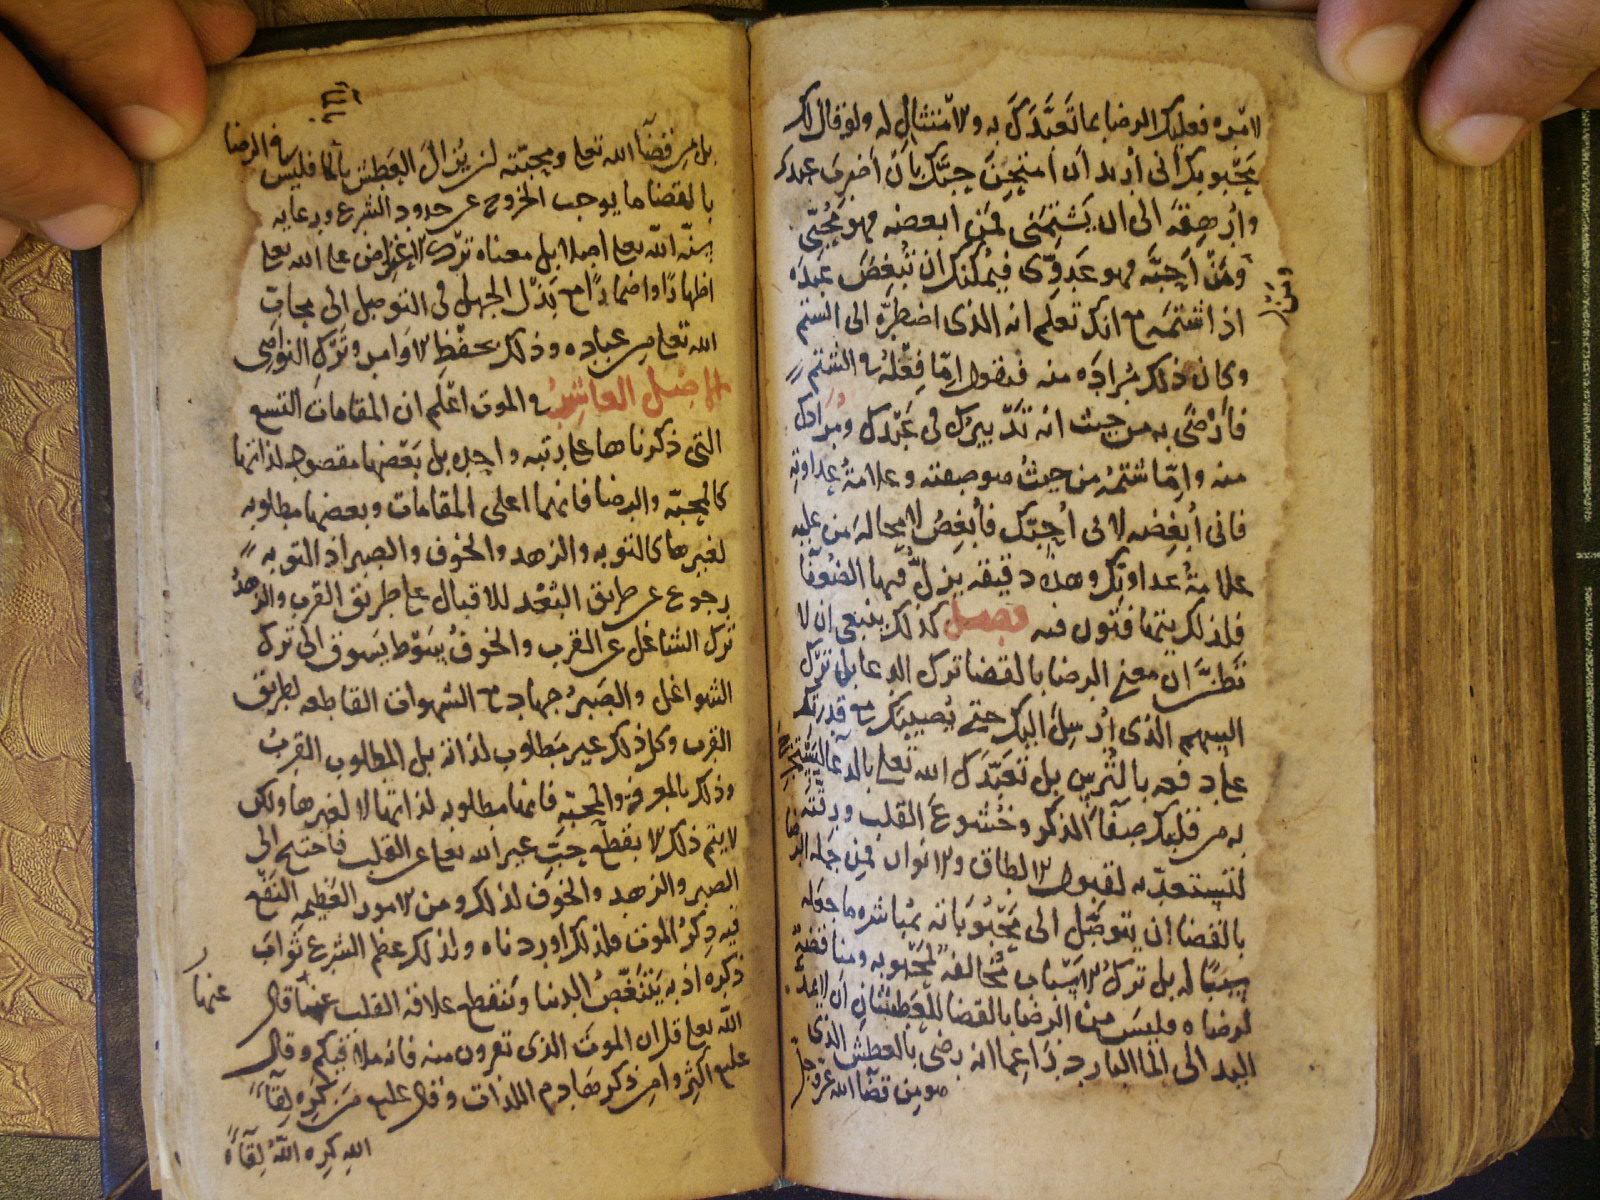 لامره فعليك الرضا بما تعبدك به والامتثال له ولو قال لك
محبوبك اني اريد ان امتحن حبك بان اضرب عبدك
وارهقه الى ان يشتمني فمن ابغضه فهو محبي
ومن احبه فهو عدوي فيمكنك ان تبغض عبده
اذا شتمه مع انك تعلم انه الذي اضطره الى الشتم
وكان ذلك مراده منه فتقول اما فعله في الشتم
فارضى به من حيث انه تدبيرك في عبدك ومرادك
منه واما شتمه من حيث هو صفته وعلامة عداوته
فاني ابغضه لاني احبك فأبغض لا محالة من عليه
علامة عداوتك وهذه دقيقه يزل فيها الضعفا
فلذلك يتهافتون فيه فصل كذلك ينبغي ان لا
تظن ان معنى الرضا بالقضا ترك الدعا بل ترك
السهم الذي ارسل اليك حتى يصيبك مع قدرتك
على دفعه بالترس بل تعبدك الله تعالى بالدعا ليستخرج
به من قلبك صفآ الذكر وخشوع القلب ورقته
لتستعد به لقبول الالطاف والانوار فمن جملة الرضا
بالقضا ان يتوصل الى محبوباته بمباشره ما جعله
سببا له بل ترك الاسباب مخالفة لمحبوبه ومناقضة
لرضاه فليس من الرضا بالقضا للعطشان ان لا يمد
اليد الى الما البارد زاعما انه رضي بالعطش الذي
هو من قضآ الله عز وجل
بل من قضآ الله تعلى ومحبته ان يزال العطش بالما فليس في الرضا
بالقضا ما يوجب الخروج عن حدود الشرع ورعايه
سنة الله تعلى اصلا بل معناه ترك الاعتراض على الله تعلى
اظهارا واضمارا مع بذل الجهد في التوصل الى محاب
الله تعلى من عباده وذلك بحفظ الاوامر وترك النواهي
الاصل العاشر في الموت اعلم ان المقامات التسع
التي ذكرناها على رتبه واحده بل بعضها مقصود لذاتها
كالمحبة والرضا فانهما اعلى المقامات وبعضها مطلوبه
لغيرها كالتوبه والزهد والخوف والصبر اذ التوبه
رجوع عن طريق البعد للاقبال على طريق القرب والزهد
ترك الشاغل عن القرب والخوف سوط يسوق الى ترك
الشواغل والصبر جهاد مع الشهوات القاطعه لطريق
القرب وكل ذلك غير مطلوب لذاته بل المطلوب القرب
وذلك بالمعرفة والمحبة فانها مطلوبه لذاتها لا لغيرها ولكن
لا يتم ذلك الا بقطع حب غير الله تعلى عن القلب فاحتج الى
الصبر والزهد والخوف لذلك ومن الامور العظيمه النفع
فيه ذكر الموت فلذلك اوردناه ولذلك عظم الشرع ثواب
ذكره اذ به يتنغص الدنيا وتنقطع علاقه القلب عنها قال
عنها
الله تعلى قل ان الموت الذي تفرون منه فانه ملاقيكم وقال
عليه اكثروا من ذكر هادم اللذات وقال عليه من كره لقآ
الله كره الله لقآه